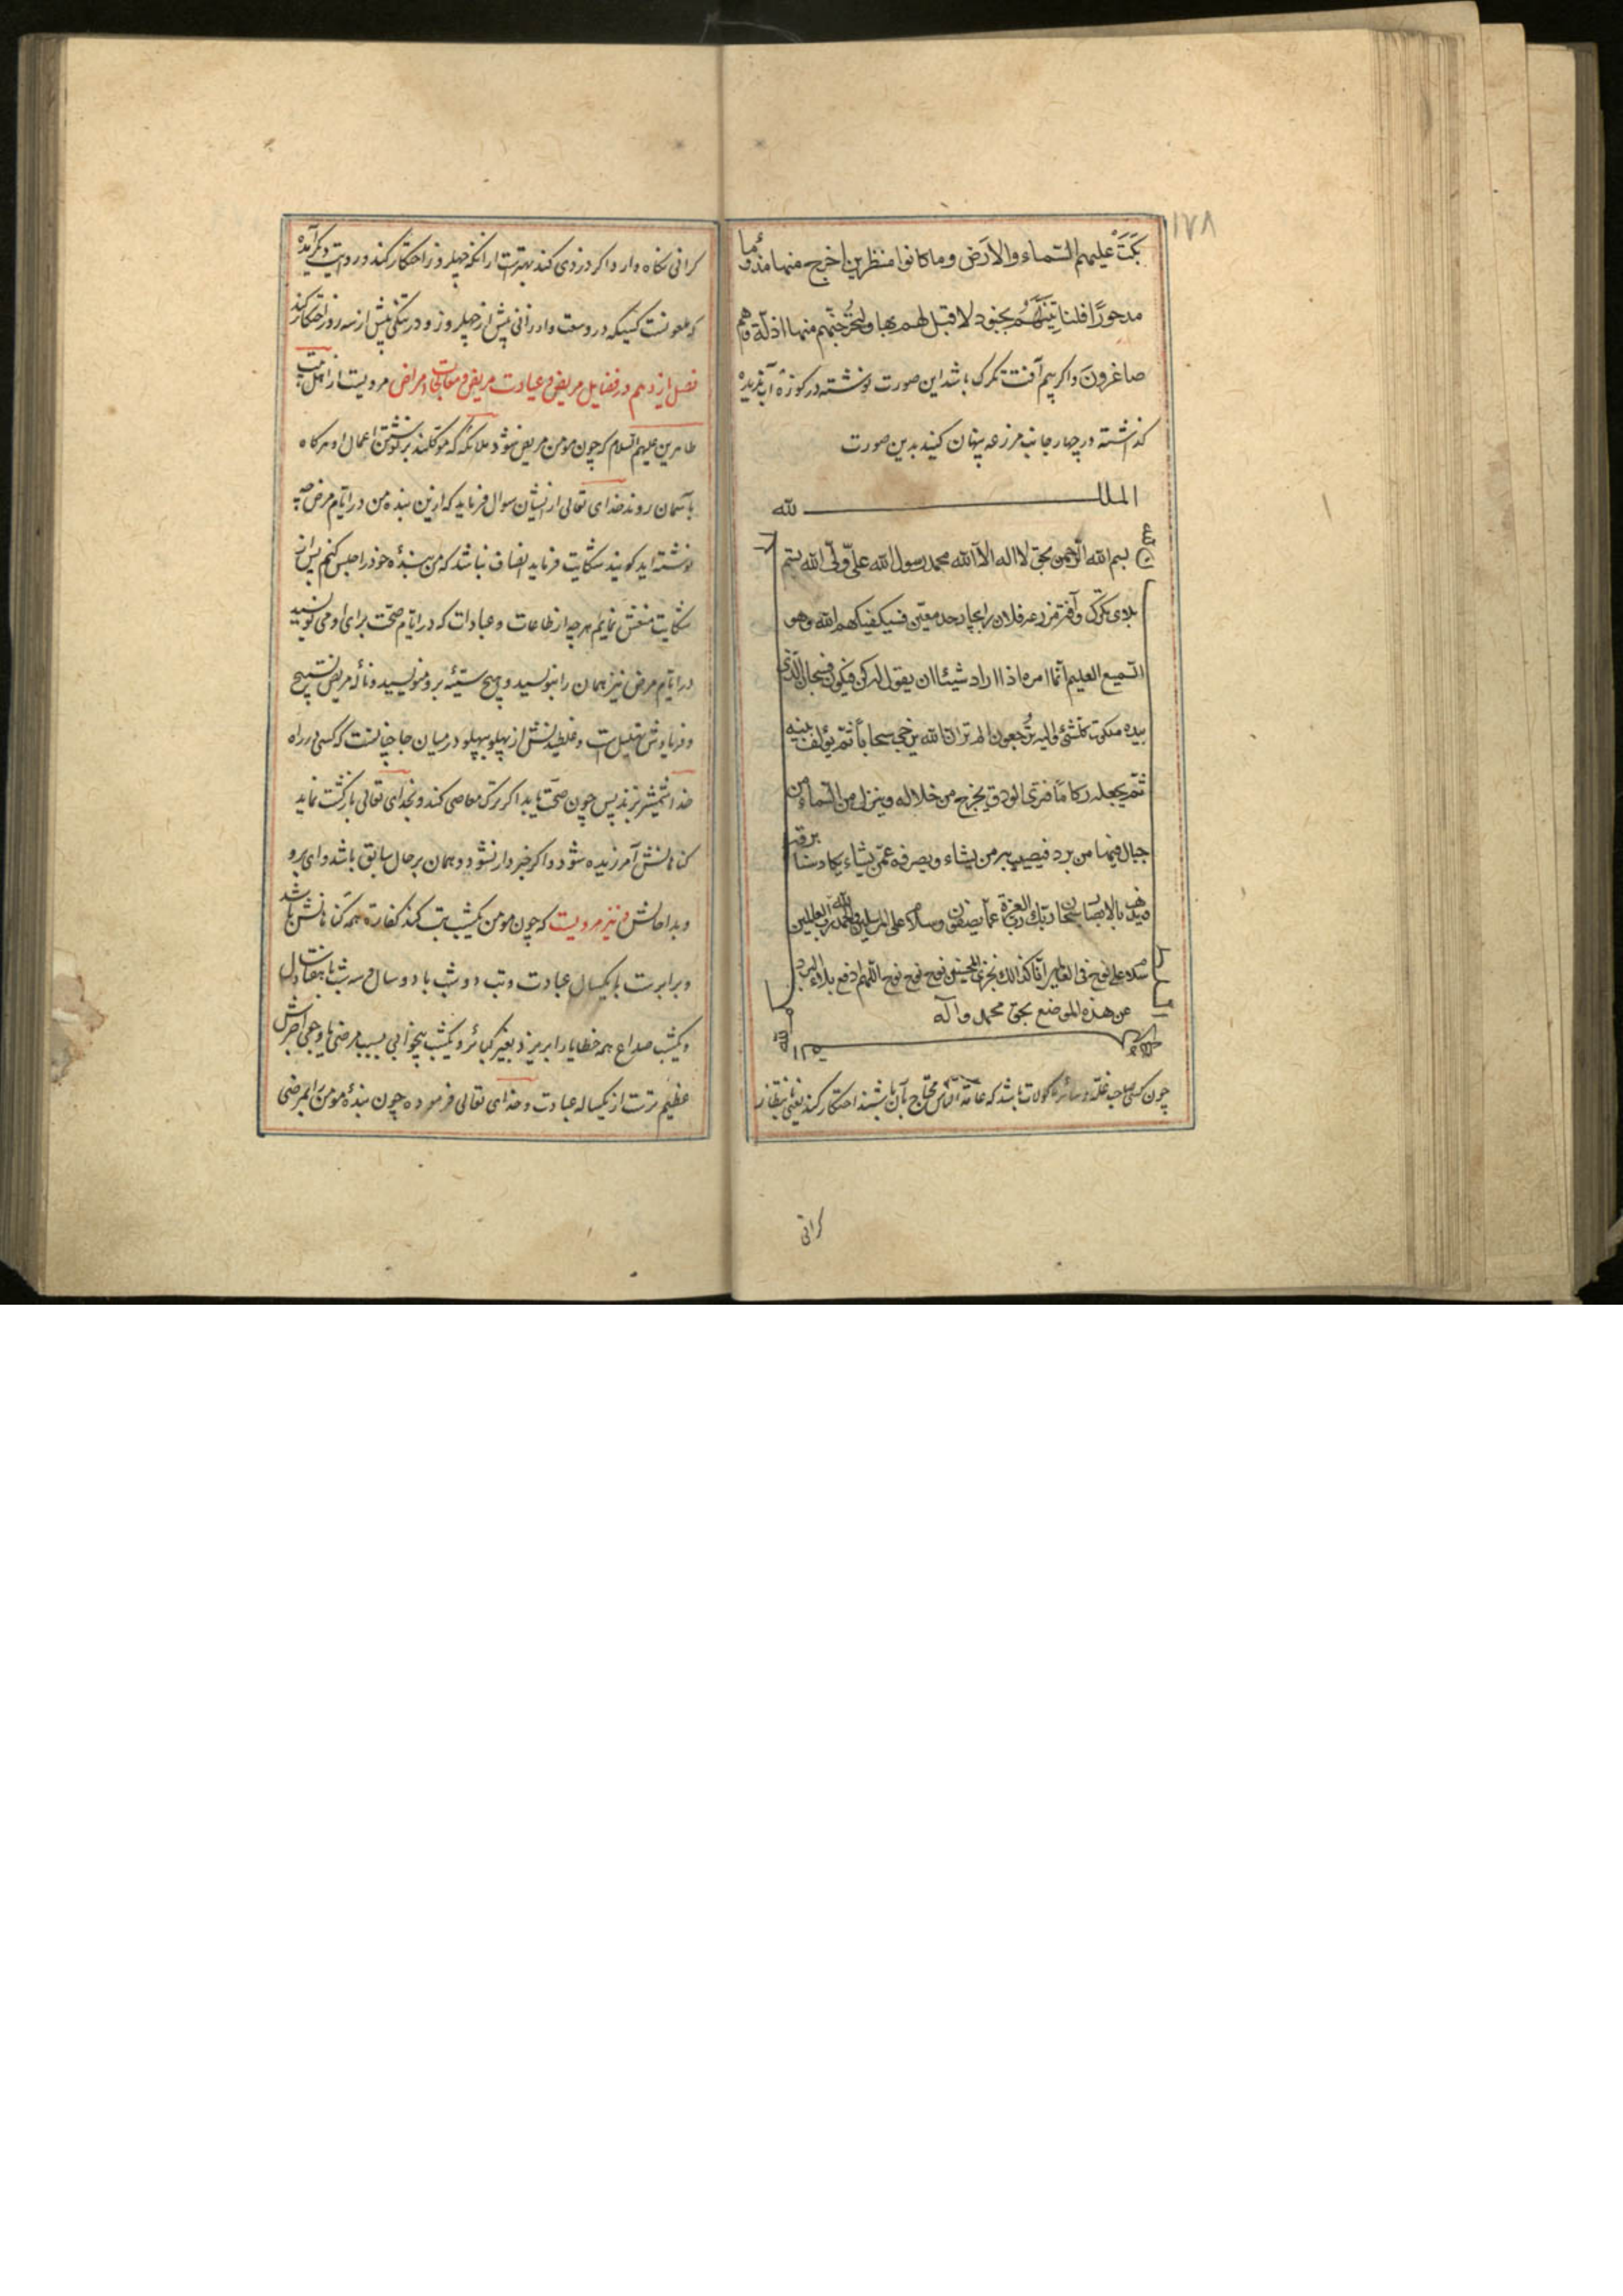 ١٧٨
بَكَتْ عليهم السماء والارض وما كانوا منظرين اخرج منها مذؤما
مدحورًا فلناتينّهُم بجنود لا قبل لهم بها ولنُخرجنّهم منها اذلّة وهم
صاغرون واكر بيم آفت تكرك باشد اين صورت نوشته در كوزهٔ آب نديده
كذاشته در چهار جانب مزرعه پنهان كنيد بدين صورت
الملك لله
بسم الله الرحمن بحق لا اله الا الله محمد رسول الله علىّ ولىّ الله
بلاى تكرك وآفت مزرعه فلان را بحد معيّن فسيكفيكهم الله وهو
السميع العليم انّما امره اذا اراد شيئا ان يقول له كن فيكون فسبحان الذى
بيده ملكوت كلشئ واليه تُرجعون الم تر ان الله يزجى سحاباً ثمّ يؤلّف بينه
ثمّ يجعله ركامًا فترى الودق يخرج من خلاله وينزل من السماء من
جبال فيها من برد فيصيب به من يشاء ويصرفه عمّن يشاء يكاد سنا برقه
يذهب بالابصار سبحان ربّك ربّ العزة عمّا يصفون وسلام على المرسلين والحمد لله رب العالمين
سلام على نوح فى العالمين انّا كذالك نجزى المحسنين نوح نوح نوح اللّهم ادفع بلاء البرد
عن هذه الموضع بحق محمد وآله
چون كسى صاحب غلّه وسائر ماكولات باشد كه عامّة النّاس محتاج بآن باشند احتكار كند يعنى بانتظار
كرانى
كرانى نكاه دارد اكر دزدى كند بهتر است از انكه چهل روز احتكار كند ودر روايت ديكر آمده
كه ملعونست كسيكه در وسعت وارزانى پيش از چهل روز ودر تنكى پيش از سه روز احتكار كند
فصل يازدهم در فضايل مريض وعيادت مريض ومعالجات امراض مرويست از اهل بيت
طاهرين عليهم السلام كه چون مومن مريض شود ملائكه كه موكلند بر نوشتن اعمال او هركاه
باسمان روند خداى تعالى از ايشان سوال فرمايد كه ازين بنده من در ايام مرض چه
نوشته ايد كويند شكايت فرمايد انصاف نباشد كه من بندهٔ خود را حبس كنم پس از
شكايت منعش نمايم هرچه از طاعات وعبادات كه در ايام صحّت براى او مى نوشتيد
در ايّام مرض نيز همان را بنويسيد وهيچ سيّئه برو منويسيد ونالهٔ مريض تسبيح
وفريادش تهليل است وغلطيدنش از پهلو بپهلو در ميان جا چنانست كه كسى در راه
خدا شمشير زند پس چون صحّت يابد اكر ترك معاصى كند وبخداى تعالى بازكشت نمايد
كناهانش آمرزيده شود واكر خبردار نشود وهمان بر حال سابق باشد واى برو
وبدا حالش ونيز مرويست كه چون مومن يكشب تب كند كفّارهٔ همه كناهانش باشد
وبرابرست با يكسال عبادت وتب دو شب با دو سال وسه شب با هفتاد سال
ويكشب صداع همه خطايا را بريزد بغير كبائر ويكشب بيخوابى بسبب مرضى يا وجعى اجرش
عظيم ترست از يكساله عبادت وخداى تعالى فرموده چون بندهٔ مومن را بمرضى